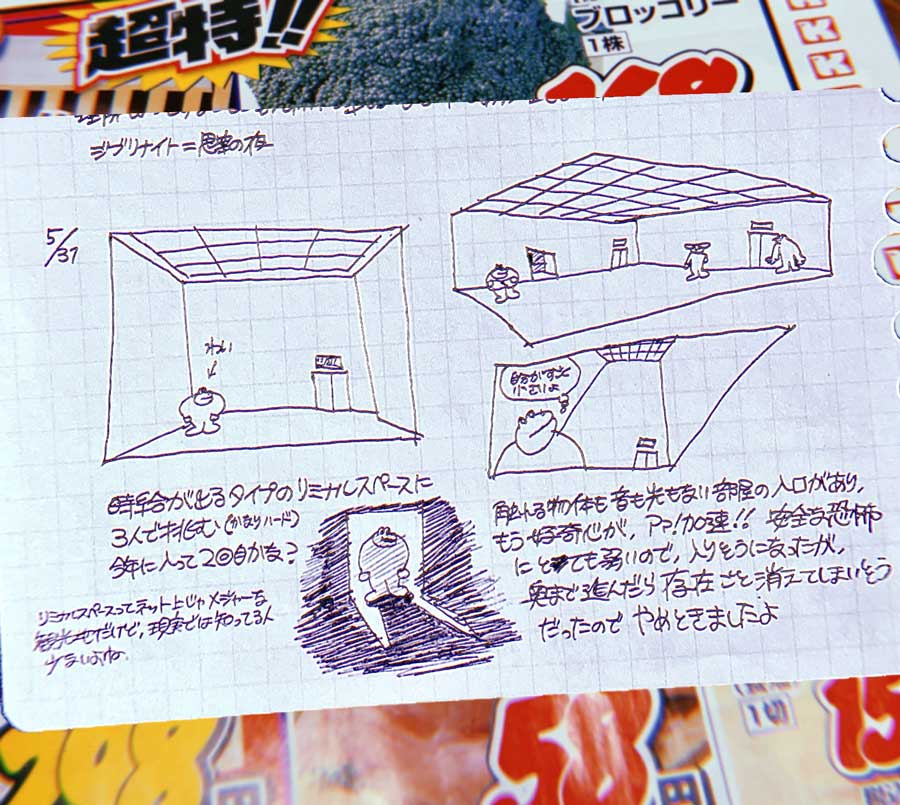 超特!!
ブロッコリー
1株
168
ジブリナイト=思案の夜
5/31
わい
自分がすっと
小さいよ
時台が出るタイプのリミナルスペースに
3人で挑む(かなりハード)
今年に入って2回目かな?
リミナルスペースってネット上じゃメジャーな
観光地だけど、現実では知ってる人
少ないよね
触れる物体も音も光もない部屋の入口があり、
もう好奇心が、アァ!加速!! 安全な恐怖
にとても弱いので、入りそうになったが、
奥まで進んだら存在ごと消えてしまいそう
だったので やめときましたよ
198
円
58
円
1切
15